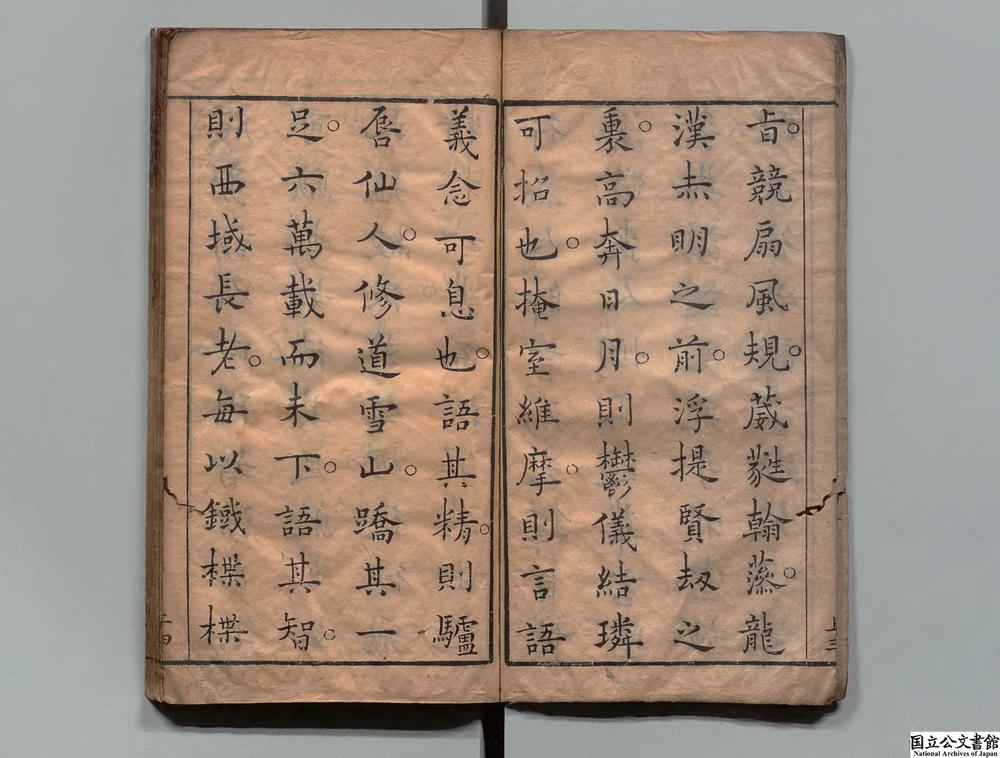 旨○競扇風規○葳蕤翰藻○龍
漢未明之前○浮提賢劫之
裏○高奔日月○則鬱儀結璘
可招也○掩室維摩○則言語
義念可息也○語其精○則驢
唇仙人○修道雪山○蹻其一
足○六萬載而未下○語其智○
則西域長老○每以鐵楪楪
国立公文書館
National Archives of Japan